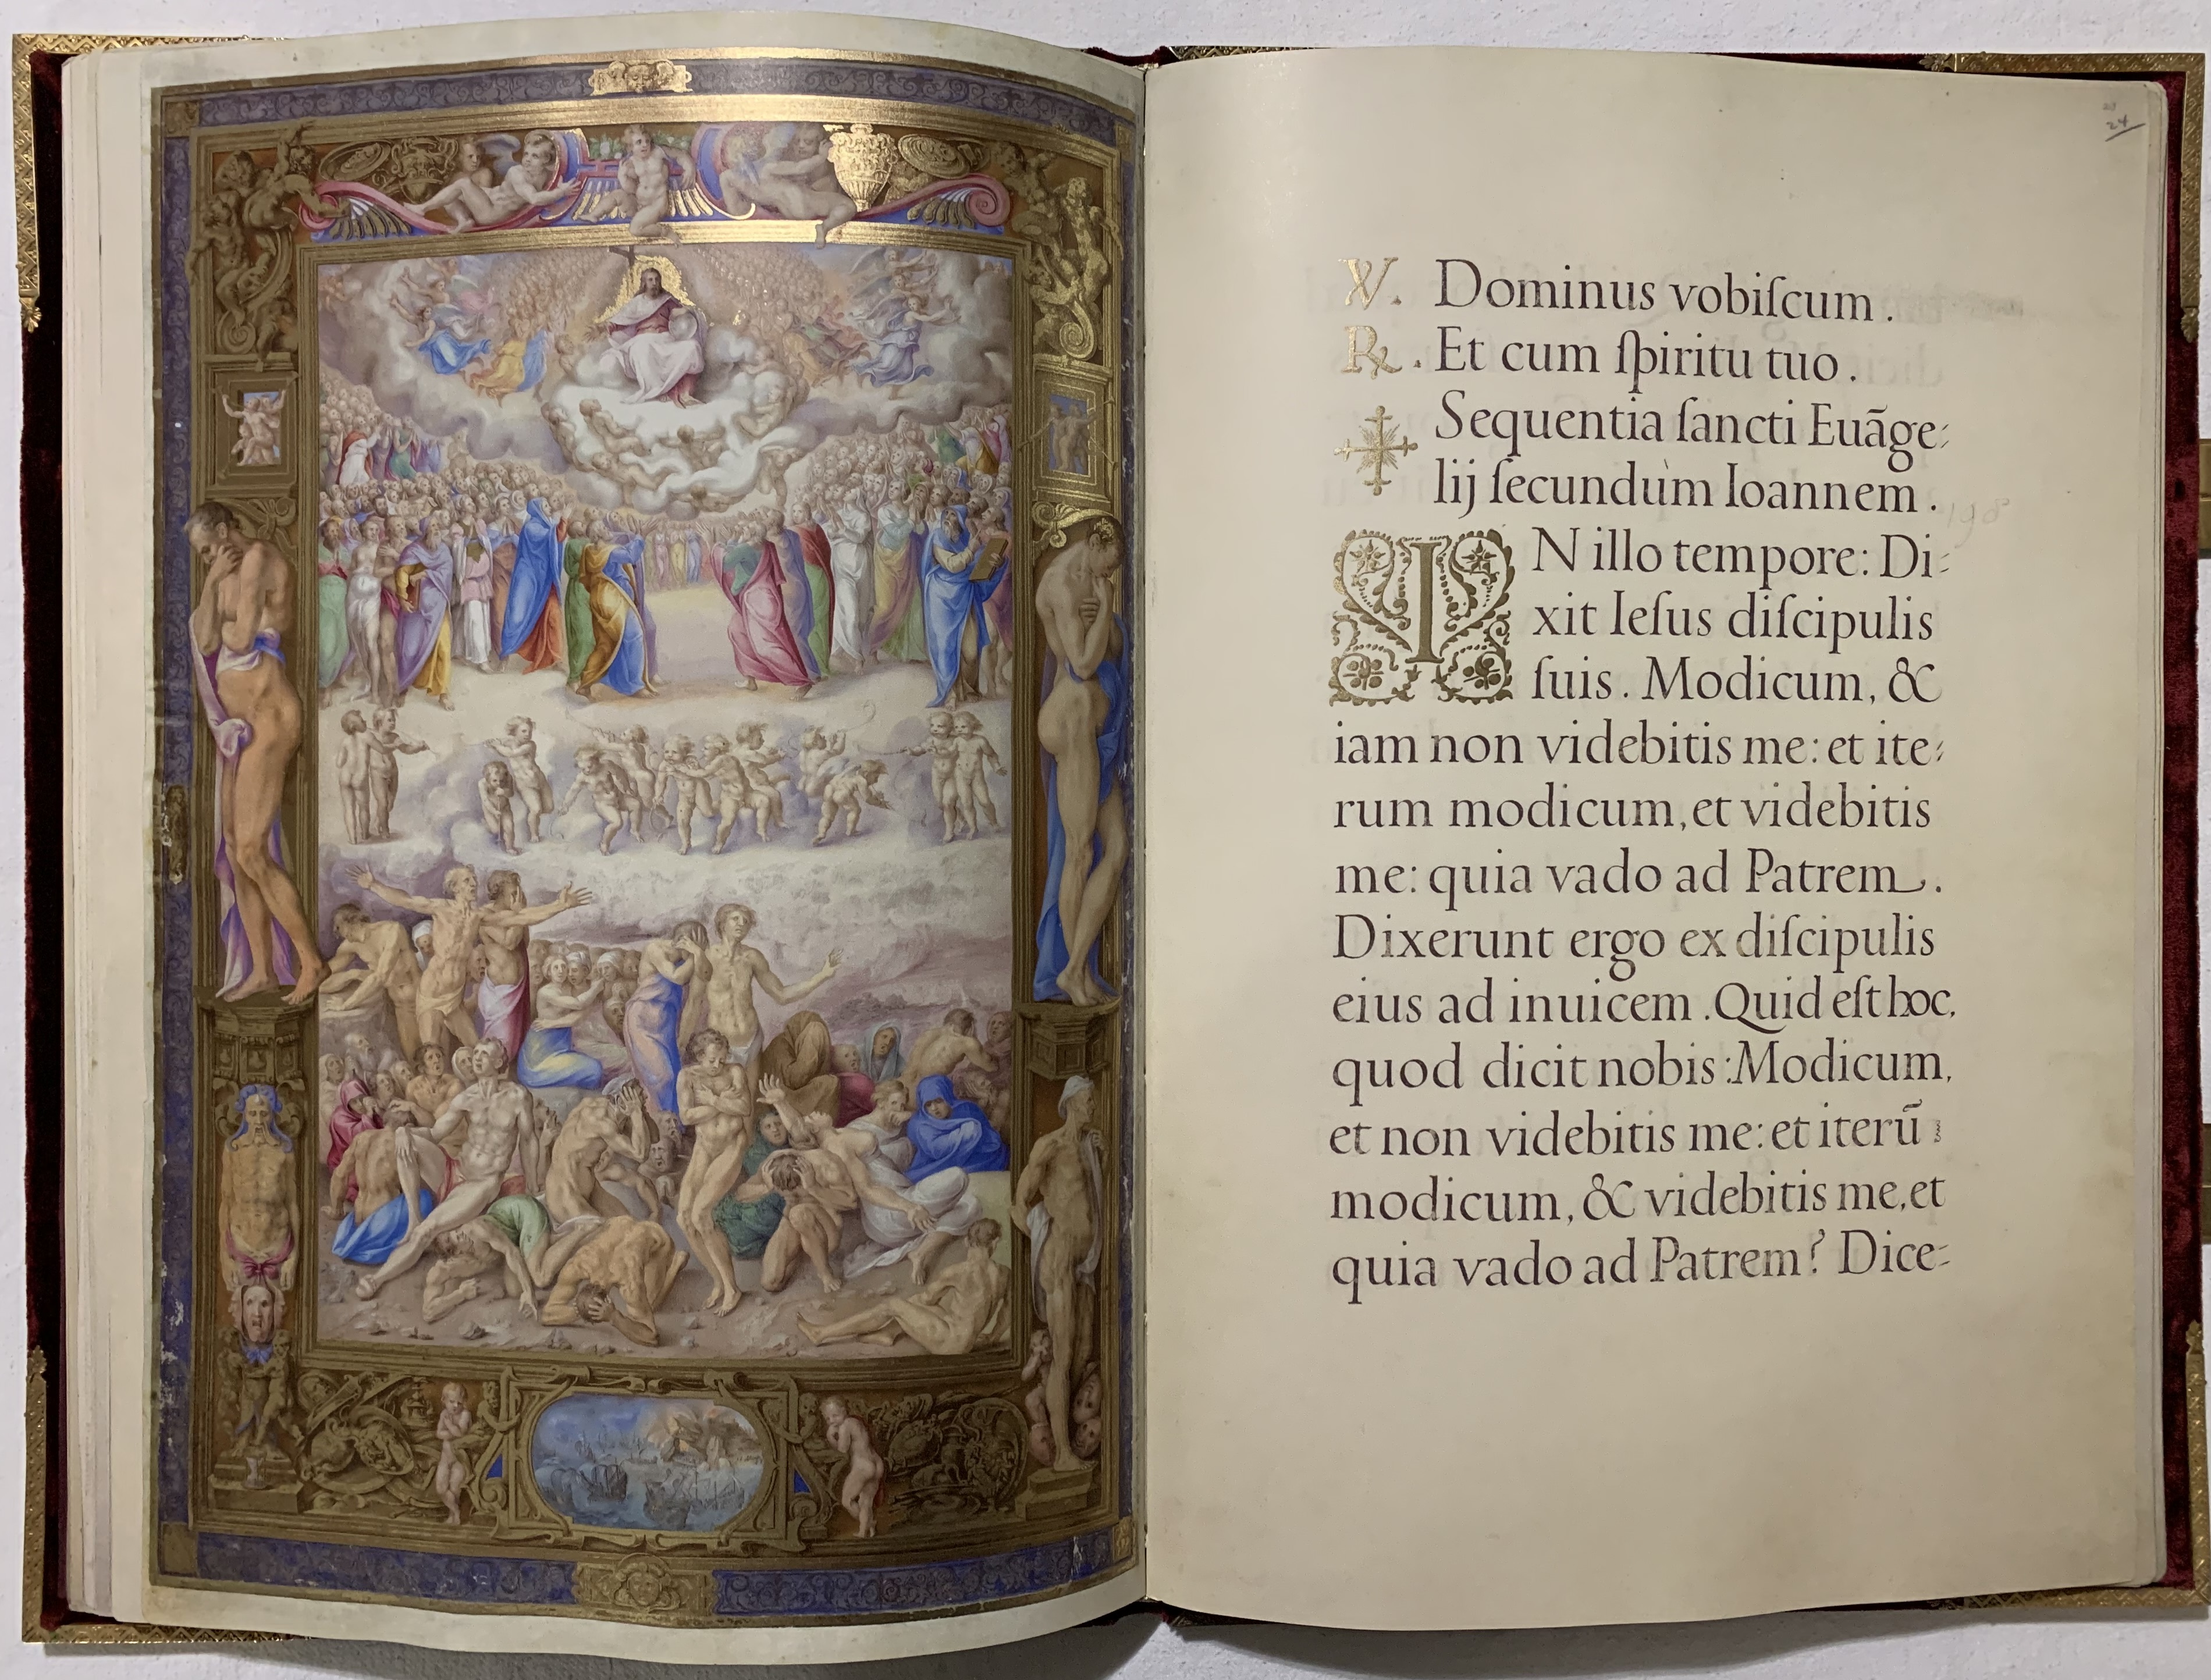 24
V. Dominus vobiſcum .
R. Et cum ſpiritu tuo .
Sequentia ſancti Euãge⸗
lij ſecundùm Ioannem .
IN illo tempore: Di⸗
xit Ieſus diſcipulis
ſuis . Modicum, &
iam non videbitis me: et ite⸗
rum modicum, et videbitis
me: quia vado ad Patrem .
Dixerunt ergo ex diſcipulis
eius ad inuicem . Quid eſt hoc,
quod dicit nobis : Modicum,
et non videbitis me: et iterũ
modicum, & videbitis me, et
quia vado ad Patrem? Dice⸗